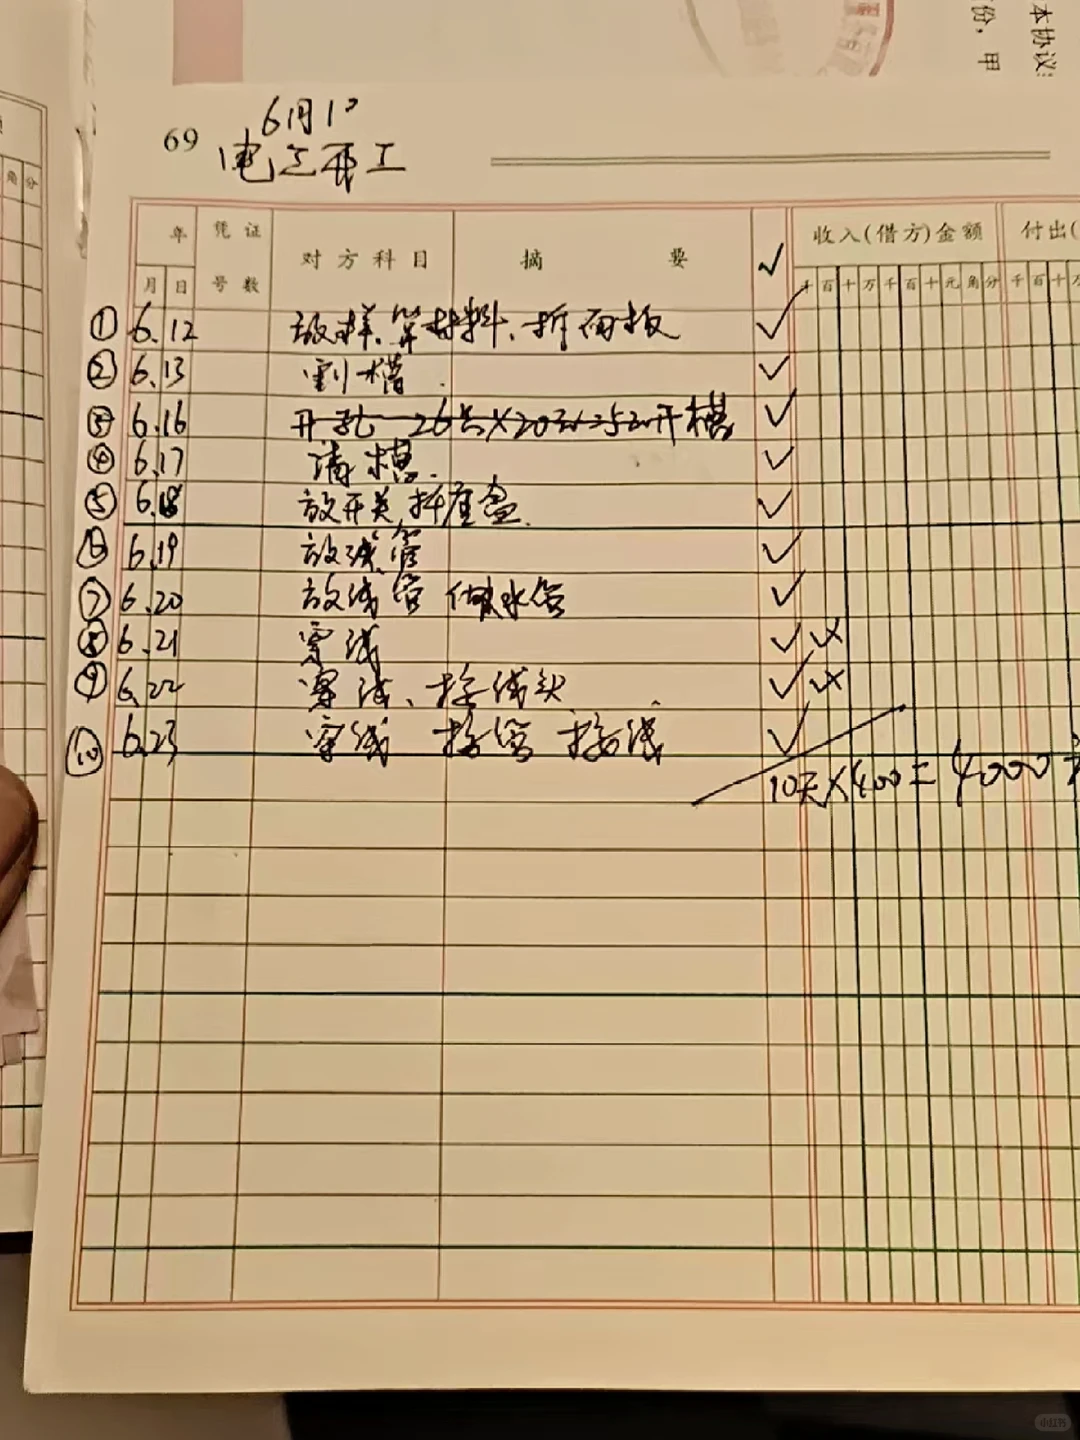 本协议
份，甲
69
6月1日
电工开工
年
凭证
号数
月 日
对方科目
摘要
✓
收入(借方)金额
付出(
千百十万千百十元角分
千百十万
角分
① 6.12 放样、算材料、拆面板 ✓
② 6.13 割槽. ✓
③ 6.16 开孔 26只×20元 25元开槽 ✓
④ 6.17 清槽. ✓
⑤ 6.18 放开关插座盒. ✓
⑥ 6.19 放线管 ✓
⑦ 6.20 放线管 做水管 ✓
⑧ 6.21 穿线 ✓
⑨ 6.22 穿线、接线头 ✓
⑩ 6.23 穿线 接管 接线 ✓
10天×400=4000
小红书